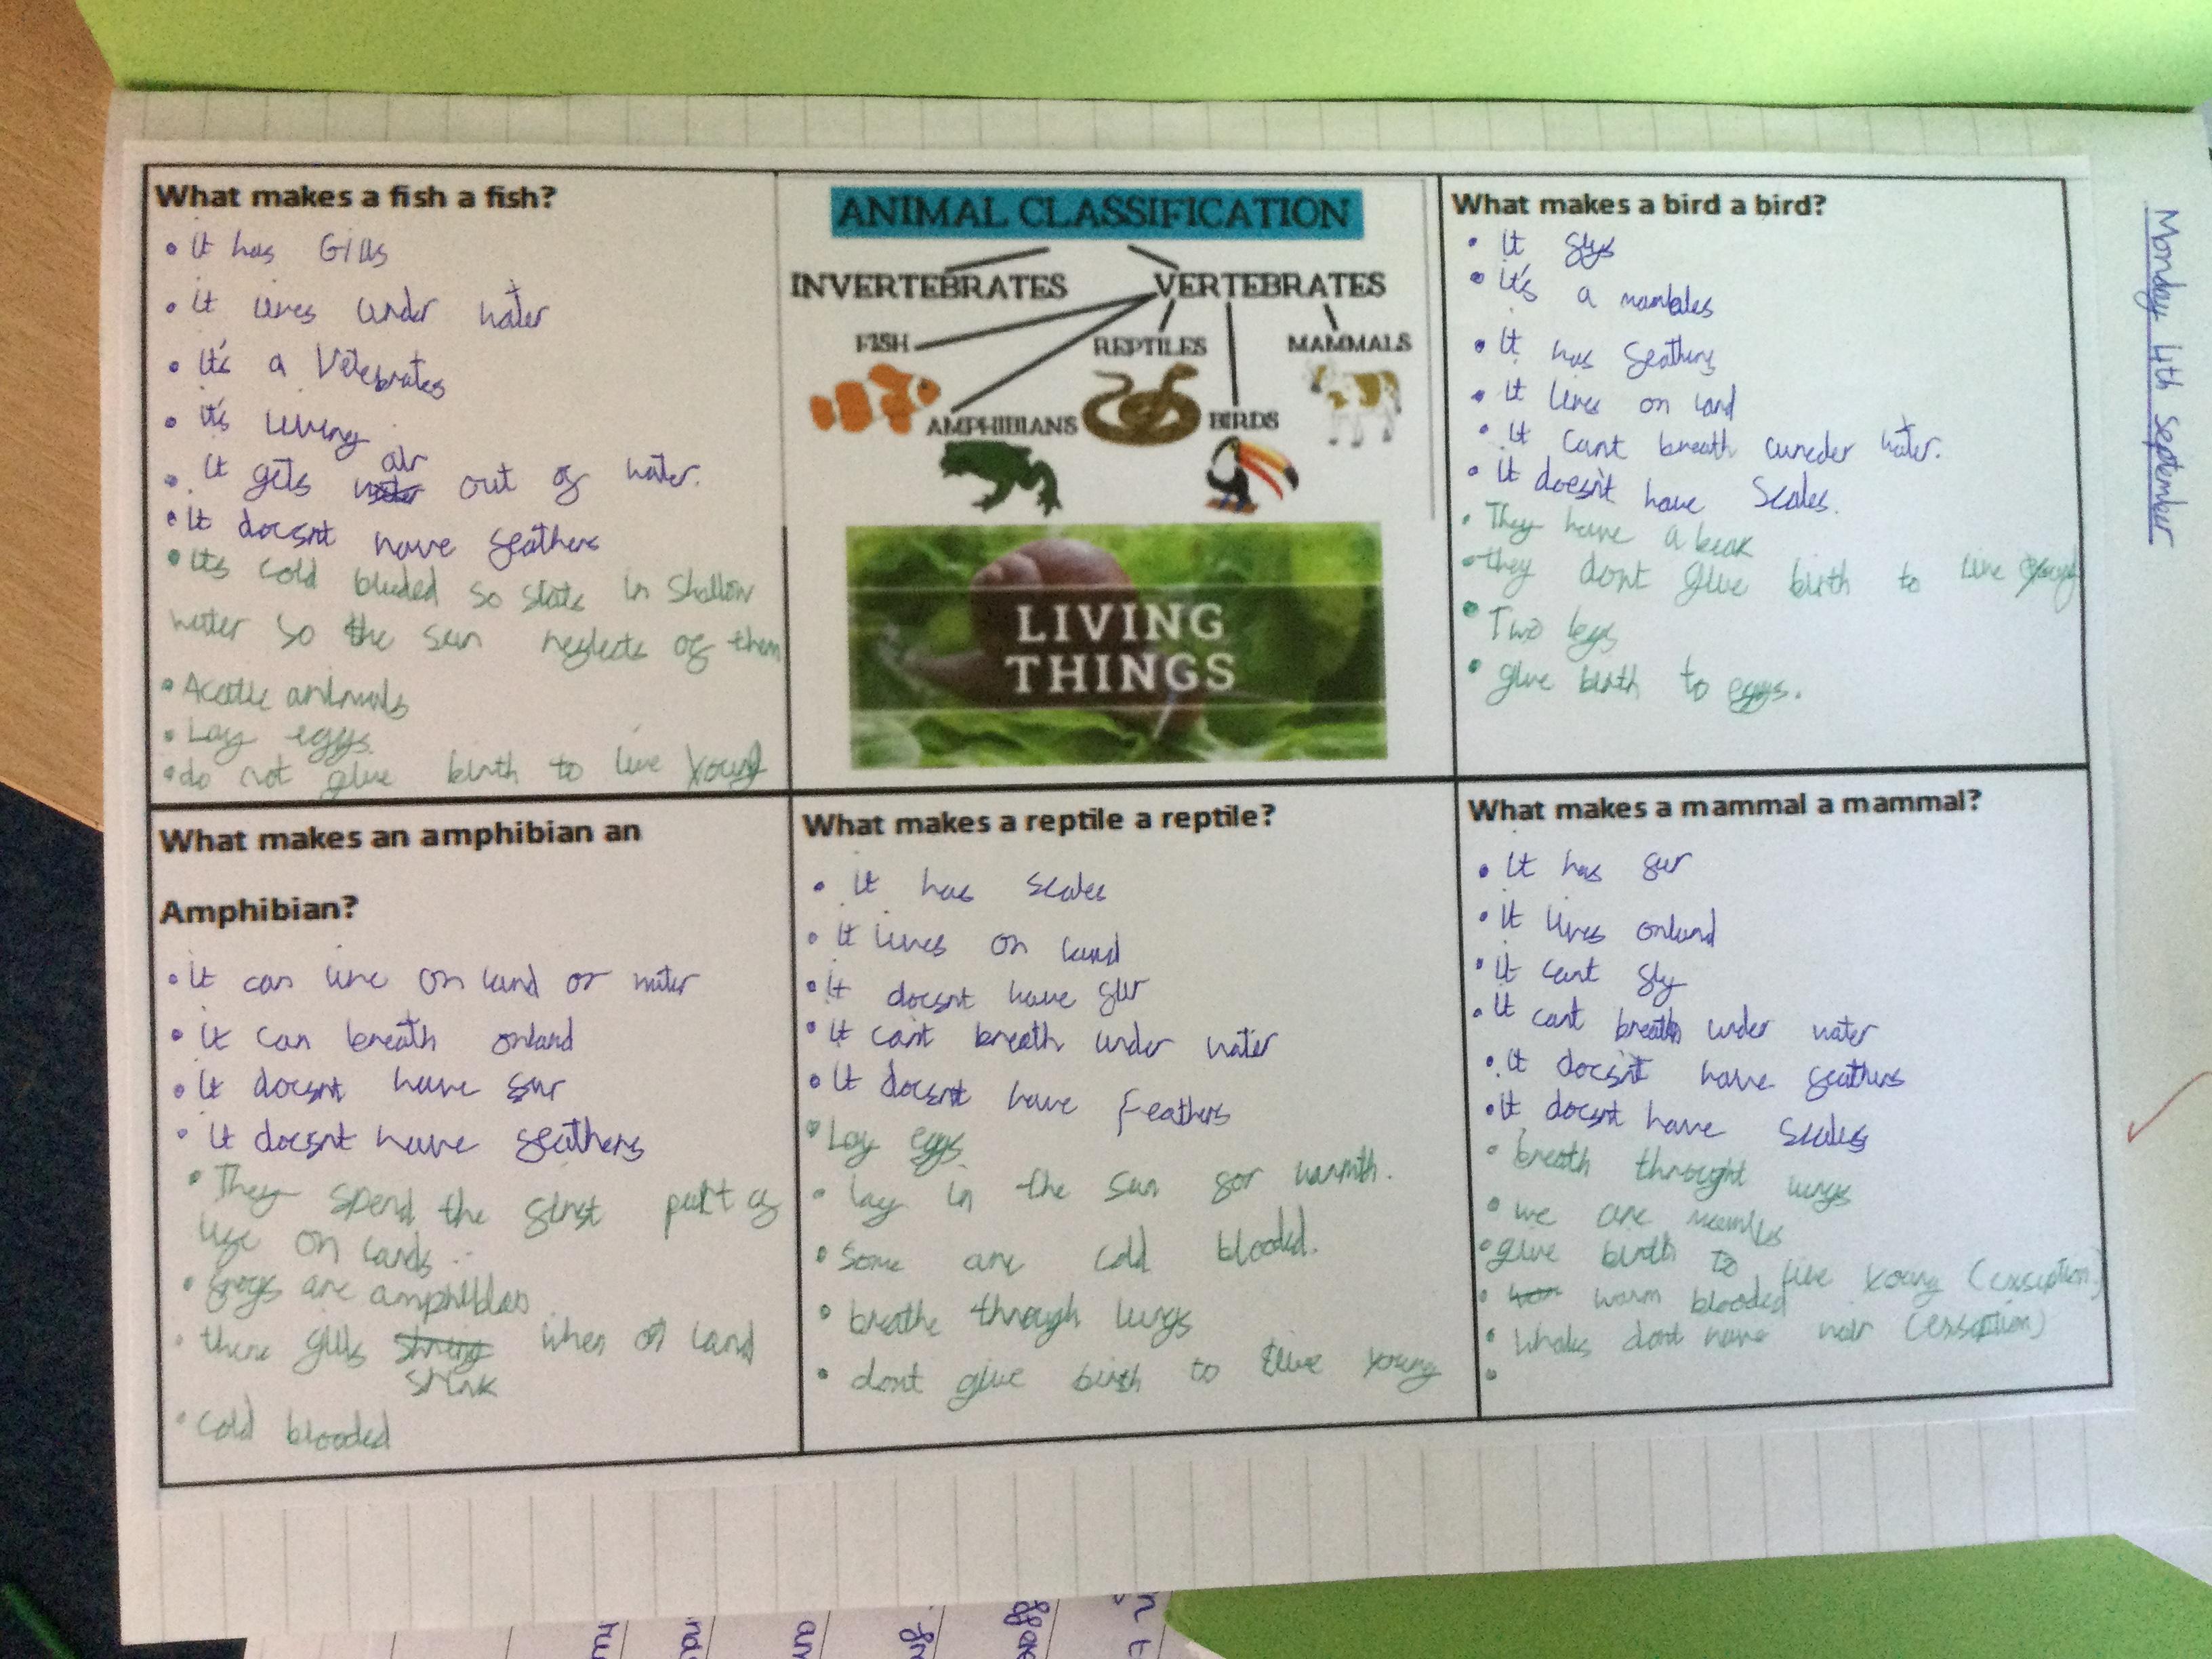 Monday 4th September
What makes a fish a fish?
• It has Gills
• it lives under water
• It's a Vetebrates
• it's living
air
• It gets out of water.
• It doesnt have feathers
• Its cold bluded so stats in shallow
water so the sun reflects of them
• Acotic animals
• Lay eggs
• do not give birth to live young
ANIMAL CLASSIFICATION
INVERTEBRATES VERTEBRATES
FISH REPTILES MAMMALS
AMPHIBIANS BIRDS
LIVING
THINGS
What makes a bird a bird?
• It flys
• it's a mambles
• It has feathers
• it lives on land
• It cant breath cuneder water.
• it doesn't have Scales.
• They have a beak
• they dont give birth to live young
• Two legs
• give birth to eggs.
What makes an amphibian an
Amphibian?
• it can live on land or water
• it can breath onland
• it doesnt have fur
• it doesnt have feathers
• They spend the first part of
life on lands.
• frogs are amphibias
• there gills string when on land
shink
• cold blooded
What makes a reptile a reptile?
• it has scales
• it lives on land
• it doesnt have fur
• it cant breath under water
• It doesnt have feathers
• Lay eggs
• lay in the sun for warmth.
• Some are cold blooded.
• breathe through lungs
• dont give birth to live young
What makes a mammal a mammal?
• it has fur
• it lives onland
• it cant fly
• it cant breath under water
• it doesn't have feathers
• it doesnt have scales
• breath throught lungs
• we are mambles
• give birth to live young (exseption)
• warm blooded
• Whales dont have hair (exseption)
•